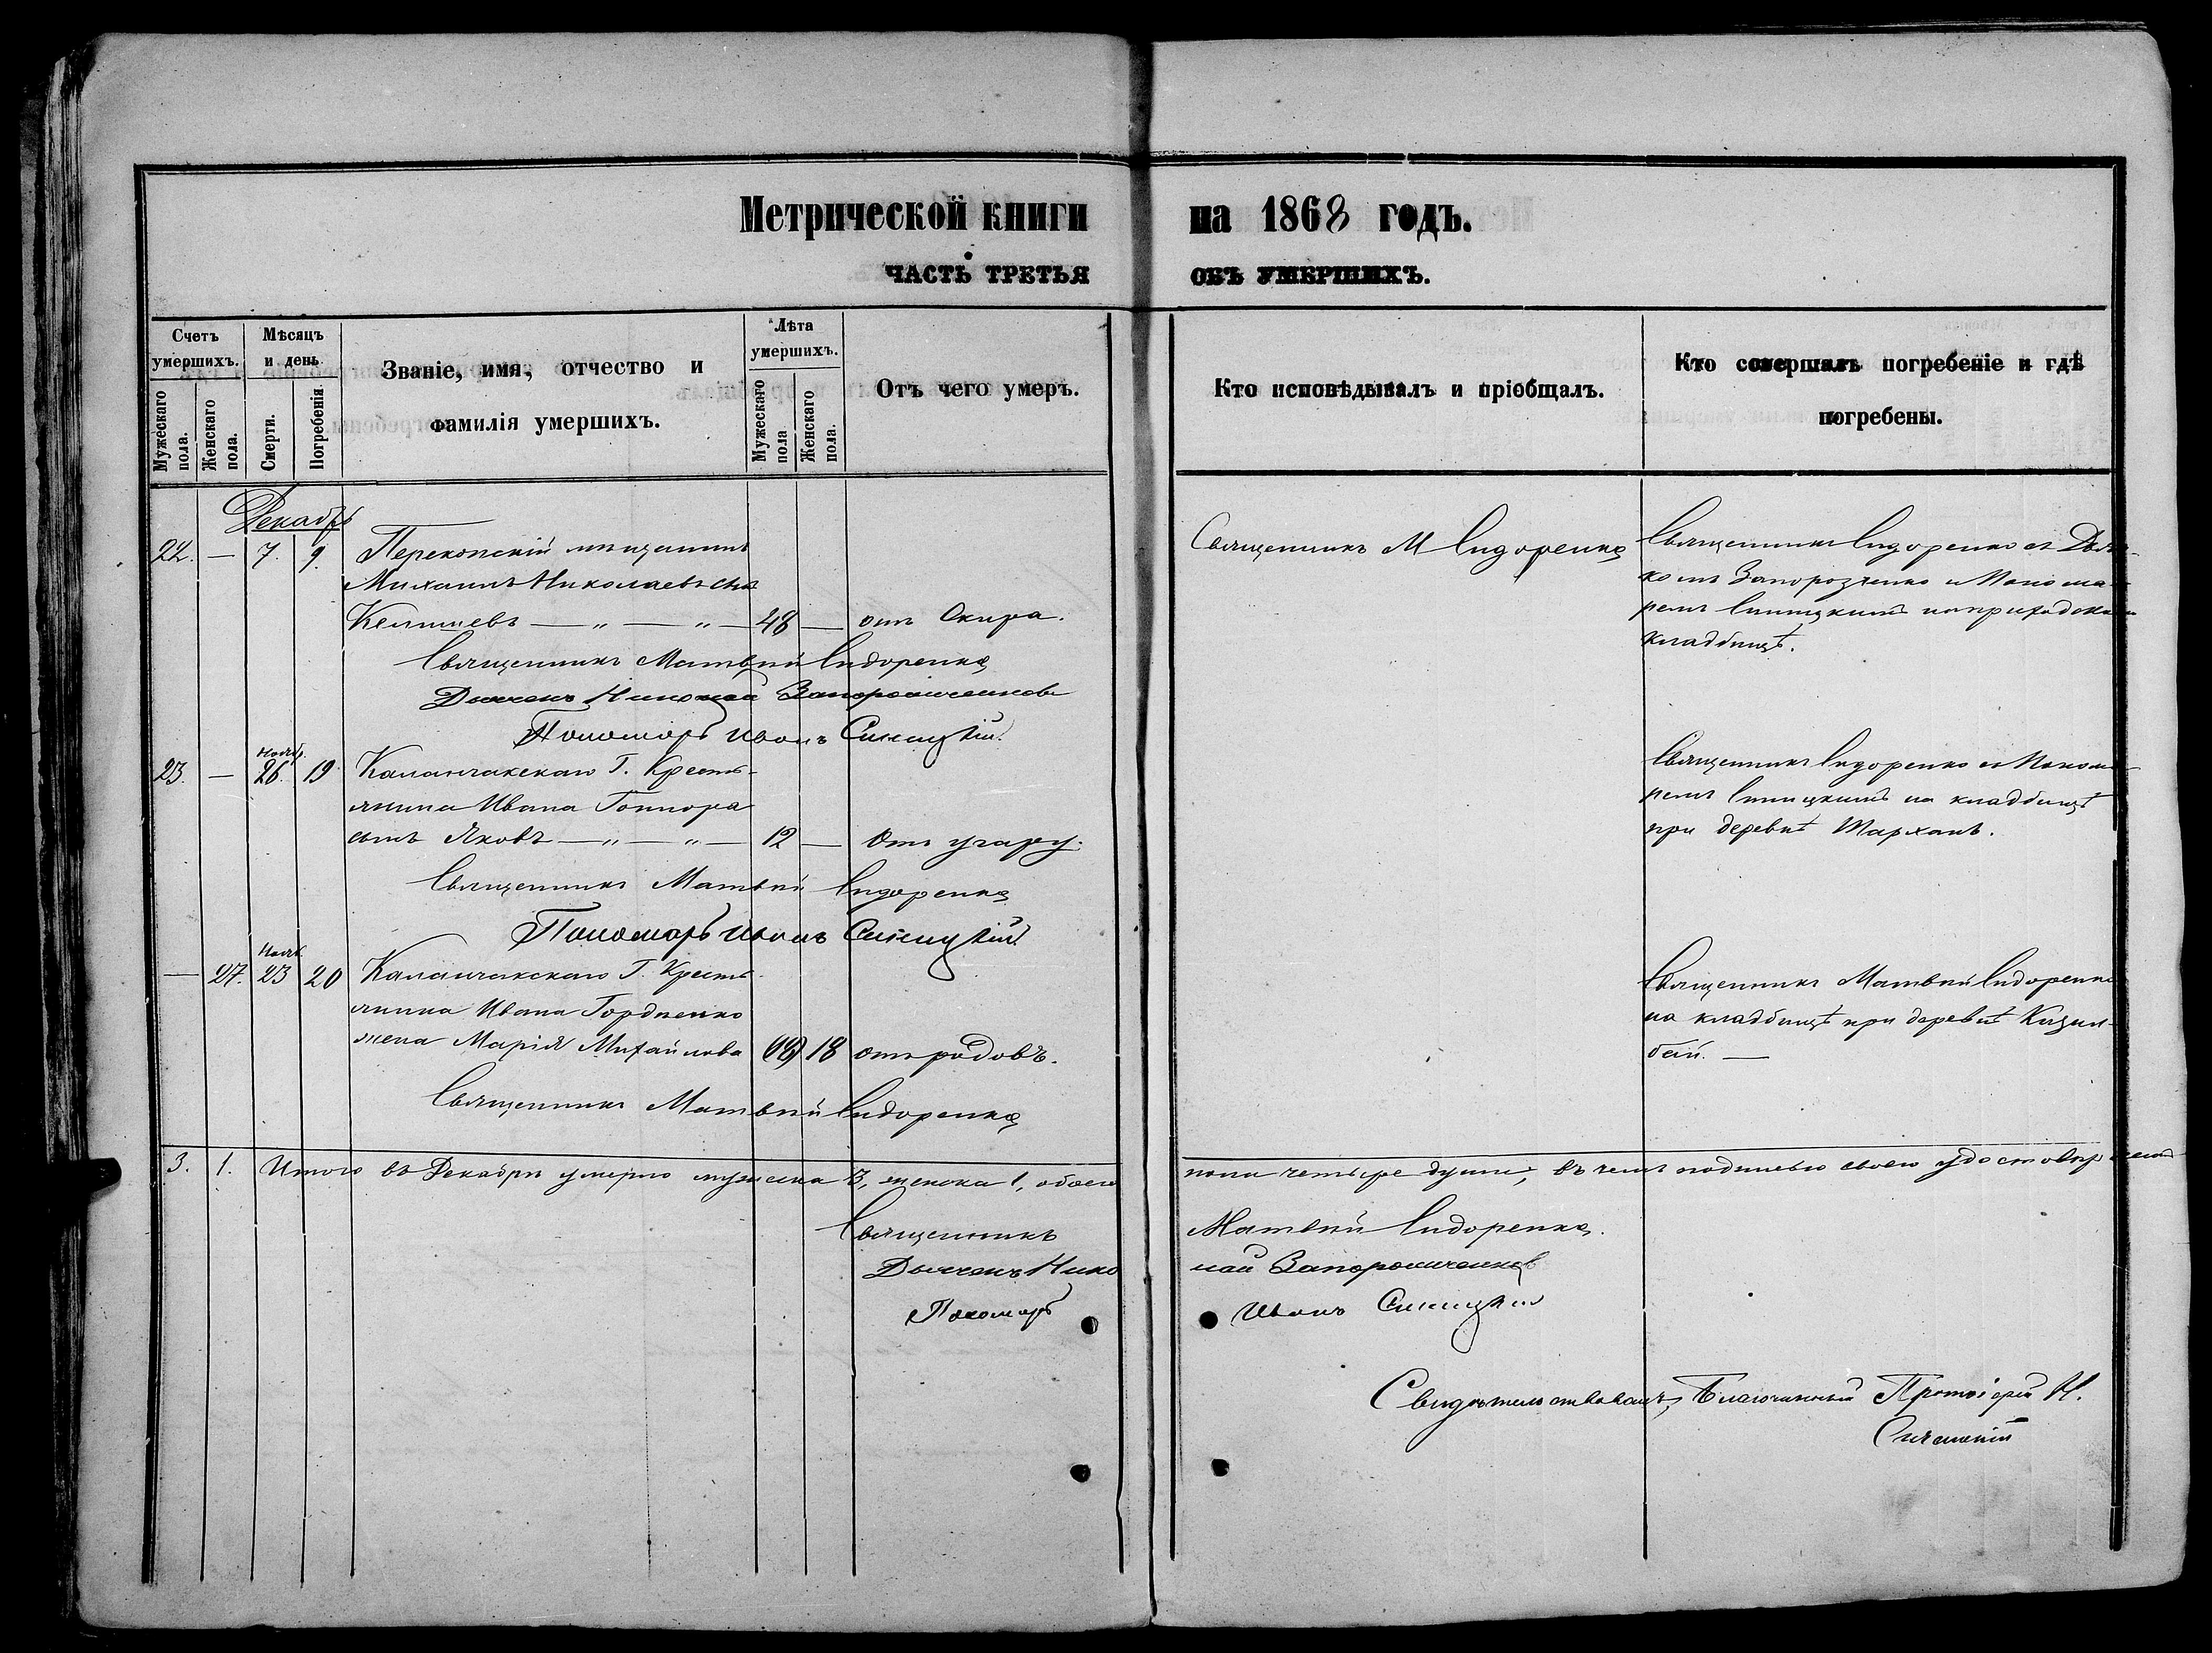 Метрической книги на 1868 годъ.
ЧАСТЬ ТРЕТЬЯ ОБЪ УМЕРШИХЪ.
Счетъ умершихъ.
Мужескаго пола.
Женскаго пола.
Мѣсяцъ и день
Смерти.
Погребенія
Званіе, имя, отчество и
фамилія умершихъ.
Лѣта умершихъ.
Мужескаго пола
Женскаго пола.
Отъ чего умеръ.
Кто исповѣдывалъ и пріобщалъ.
Кто совершалъ погребеніе и гдѣ
погребены.
Декабрь
22. — 7. 9. Перекопскій мѣщанинъ
Михаилъ Николаевъ сынъ
— „ — „ — 48 — отъ
Священникъ М Сидоренко
Священникъ Сидоренко съ Дьяч-
комъ Запорозченко и Понома-
ремъ Синицкимъ на приходскомъ
кладбищѣ.
Священникъ Матвѣй Сидоренко
Дьячекъ Николай Запорожченковъ
Пономарь Иванъ Синицкій
Нояб.
23. — 26. 19 Каланчакскаго Г. Кресть-
янина Ивана
сынъ Яковъ — „ — „ — 12 — Отъ угару.
Священникъ Сидоренко и Понома-
ремъ Синицкимъ на кладбищѣ
при деревнѣ Тарханъ.
Священникъ Матвѣй Сидоренко
Пономарь Иванъ Синицкій
Нояб.
— 27. 23 20 Каланчакскаго Г. Кресть-
янина Ивана Гордиенко
жена Марія Михайлова (18) 18 отъ родовъ.
Священникъ Матвѣй Сидоренко
на кладбищѣ при деревнѣ Кизил-
бай. —
Священникъ Матвѣй Сидоренко
3. 1. Итого въ Декабрѣ умерло мужеска 3, женска 1, обоего пола четыре души, въ чемъ подписью своею удостовѣряемъ
Священникъ Матвѣй Сидоренко.
Дьячекъ Николай Запорожченковъ
Пономарь Иванъ Синицкій
Свидѣтельствовалъ, Благочинный Протоіерей Н.